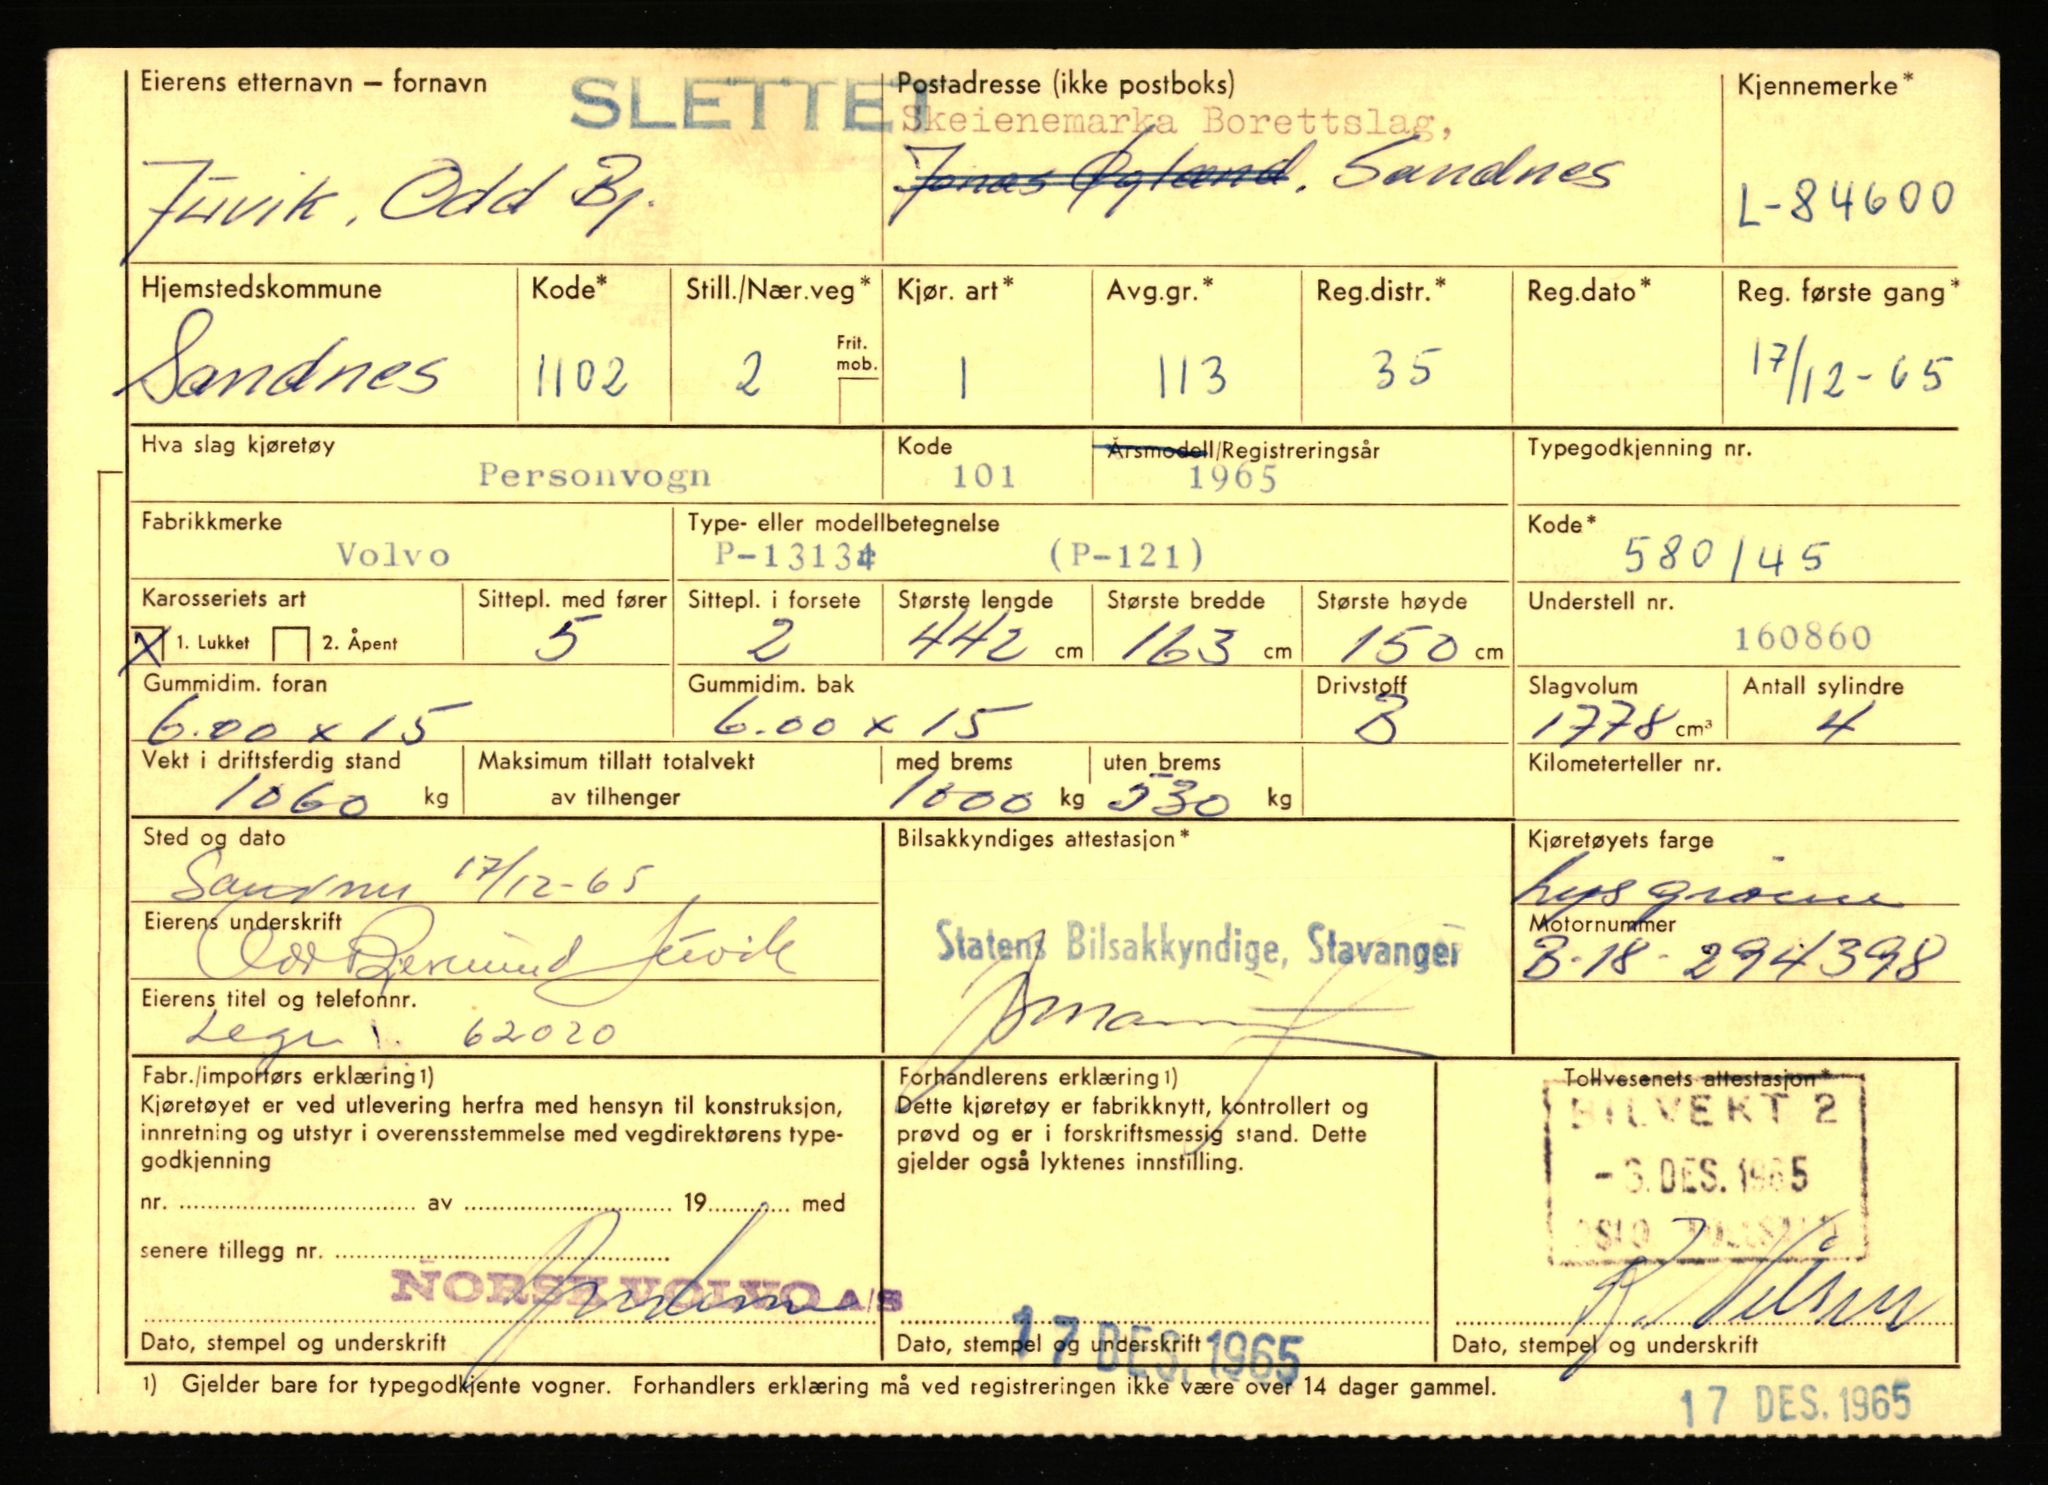 Eierens etternavn — fornavn
SLETTET
Postadresse (ikke postboks)
Kjennemerke*
Skeienemarka Borettslag,
Juvik, Odd Bj.
Jonas Øgland, Sandnes
L-84600
Hjemstedskommune
Kode*
Still./Nær.veg*
Kjør. art*
Avg.gr.*
Reg.distr.*
Reg.dato*
Reg. første gang*
Frit. mob.
Sandnes
1102
2
1
113
35
17/12-65
Hva slag kjøretøy
Kode
Årsmodell/Registreringsår
Typegodkjenning nr.
Personvogn
101
1965
Fabrikkmerke
Type- eller modellbetegnelse
Kode*
Volvo
P-13134 (P-121)
580/45
Karosseriets art
Sittepl. med fører
Sittepl. i forsete
Største lengde
Største bredde
Største høyde
Understell nr.
X 1. Lukket 2. Åpent
5
2
442 cm
163 cm
150 cm
160860
Gummidim. foran
Gummidim. bak
Drivstoff
Slagvolum
Antall sylindre
6.00 x 15
6.00 x 15
B
1778 cm³
4
Vekt i driftsferdig stand
Maksimum tillatt totalvekt
med brems
uten brems
Kilometerteller nr.
1060 kg
av tilhenger
1000 kg
530 kg
Sted og dato
Bilsakkyndiges attestasjon*
Kjøretøyets farge
Sandnes 17/12-65
lysgrønn
Eierens underskrift
Motornummer
Odd Bjermund Juvik
Statens Bilsakkyndige, Stavanger
B-18-294398
Eierens titel og telefonnr.
62020
Fabr./importørs erklæring1)
Kjøretøyet er ved utlevering herfra med hensyn til konstruksjon,
innretning og utstyr i overensstemmelse med vegdirektørens type-
godkjenning
nr. .......... av .......... 19.......... med
senere tillegg nr. ..........
NORSK VOLVO A/S
Dato, stempel og underskrift
Forhandlerens erklæring1)
Dette kjøretøy er fabrikknytt, kontrollert og
prøvd og er i forskriftsmessig stand. Dette
gjelder også lyktenes innstilling.
17 DES. 1965
Dato, stempel og underskrift
Tollvesenets attestasjon*
BILVEKT 2
-3. DES. 1965
OSLO
K. Nilsen
Dato, stempel og underskrift
1) Gjelder bare for typegodkjente vogner. Forhandlers erklæring må ved registreringen ikke være over 14 dager gammel.
17 DES. 1965